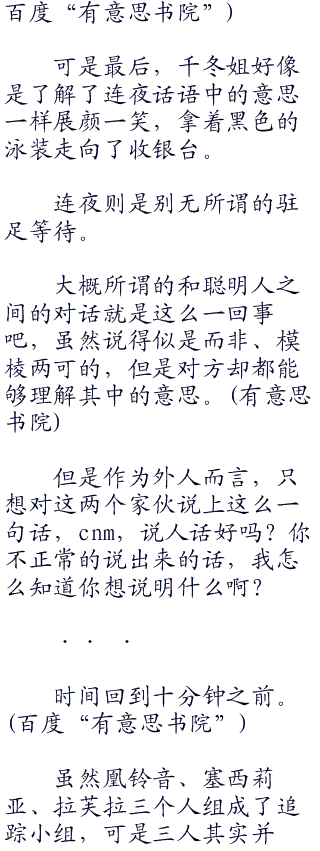 百度“有意思书院”)
可是最后，千冬姐好像
是了解了连夜话语中的意思
一样展颜一笑，拿着黑色的
泳装走向了收银台。
连夜则是别无所谓的驻
足等待。
大概所谓的和聪明人之
间的对话就是这么一回事
吧，虽然说得似是而非、模
棱两可的，但是对方却都能
够理解其中的意思。(有意思
书院)
但是作为外人而言，只
想对这两个家伙说上这么一
句话，cnm，说人话好吗？你
不正常的说出来的话，我怎
么知道你想说明什么啊？
· · ·
时间回到十分钟之前。
(百度“有意思书院”)
虽然凰铃音、塞西莉
亚、拉芙拉三个人组成了追
踪小组，可是三人其实并